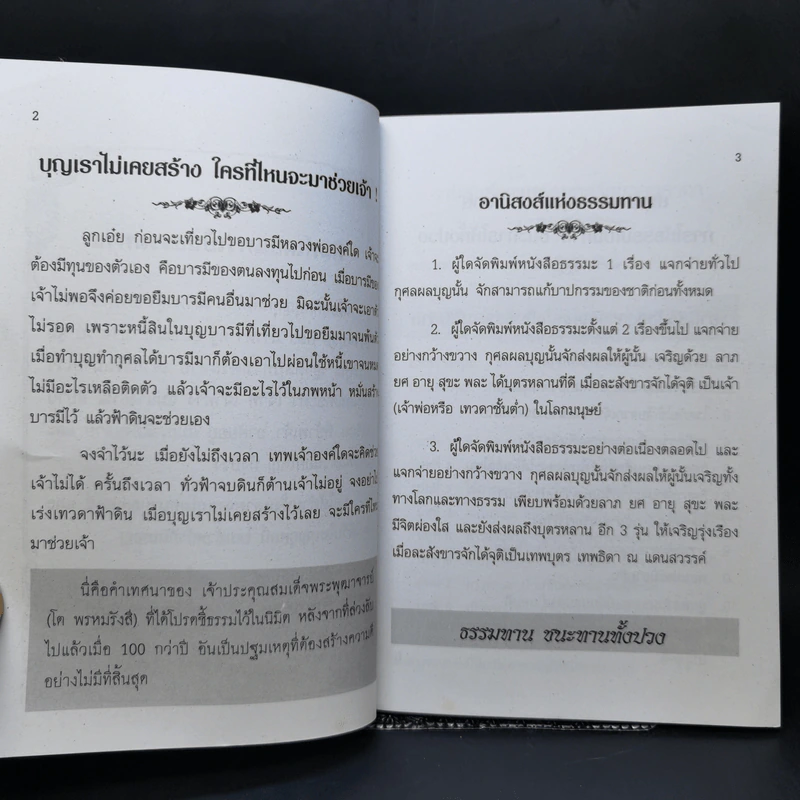 2
บุญเราไม่เคยสร้าง ใครที่ไหนจะมาช่วยเจ้า !
ลูกเอ๋ย ก่อนจะเที่ยวไปขอบารมีหลวงพ่อองค์ใด เจ้าจะ
ต้องมีทุนของตัวเอง คือบารมีของตนลงทุนไปก่อน เมื่อบารมีของ
เจ้าไม่พอจึงค่อยขอยืมบารมีคนอื่นมาช่วย มิฉะนั้นเจ้าจะเอาตัว
ไม่รอด เพราะหนี้สินในบุญบารมีที่เที่ยวไปขอยืมมาจนพ้นตัว
เมื่อทำบุญทำกุศลได้บารมีมาก็ต้องเอาไปผ่อนใช้หนี้เขาจนหมด
ไม่มีอะไรเหลือติดตัว แล้วเจ้าจะมีอะไรไว้ในภพหน้า หมั่นสร้าง
บารมีไว้ แล้วฟ้าดินจะช่วยเอง
จงจำไว้นะ เมื่อยังไม่ถึงเวลา เทพเจ้าองค์ใดจะคิดช่วย
เจ้าไม่ได้ ครั้นถึงเวลา ทั่วฟ้าจบดินก็ต้านเจ้าไม่อยู่ จงอย่าไป
เร่งเทวดาฟ้าดิน เมื่อบุญเราไม่เคยสร้างไว้เลย จะมีใครที่ไหน
มาช่วยเจ้า
นี่คือคำเทศนาของ เจ้าประคุณสมเด็จพระพุฒาจารย์
(โต พรหมรังสี) ที่ได้โปรดชี้ธรรมไว้ในนิมิต หลังจากที่ล่วงลับ
ไปแล้วเมื่อ 100 กว่าปี อันเป็นปฐมเหตุที่ต้องสร้างความดี
อย่างไม่มีที่สิ้นสุด
3
อานิสงส์แห่งธรรมทาน
1. ผู้ใดจัดพิมพ์หนังสือธรรมะ 1 เรื่อง แจกจ่ายทั่วไป
กุศลผลบุญนั้น จักสามารถแก้บาปกรรมของชาติก่อนทั้งหมด
2. ผู้ใดจัดพิมพ์หนังสือธรรมะตั้งแต่ 2 เรื่องขึ้นไป แจกจ่าย
อย่างกว้างขวาง กุศลผลบุญนั้นจักส่งผลให้ผู้นั้น เจริญด้วย ลาภ
ยศ อายุ สุขะ พละ ได้บุตรหลานที่ดี เมื่อละสังขารจักได้จุติ เป็นเจ้า
(เจ้าพ่อหรือ เทวดาชั้นต่ำ) ในโลกมนุษย์
3. ผู้ใดจัดพิมพ์หนังสือธรรมะอย่างต่อเนื่องตลอดไป และ
แจกจ่ายอย่างกว้างขวาง กุศลผลบุญนั้นจักส่งผลให้ผู้นั้นเจริญทั้ง
ทางโลกและทางธรรม เพียบพร้อมด้วยลาภ ยศ อายุ สุขะ พละ
มีจิตผ่องใส และยังส่งผลถึงบุตรหลาน อีก 3 รุ่น ให้เจริญรุ่งเรือง
เมื่อละสังขารจักได้จุติเป็นเทพบุตร เทพธิดา ณ แดนสวรรค์
ธรรมทาน ชนะทานทั้งปวง